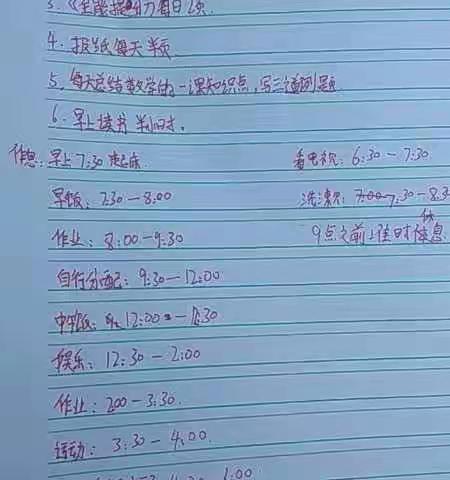 3.《全 能力 每日 2页
4. 报纸每天半页
5. 每天总结数学的一课知识点,写三道例题
6. 早上读书半小时.
作息: 早上7:30 起床 看电视: 6:30-7:30
早饭: 7:30-8:00 洗漱: 7:30-8:3
作业: 8:00-9:30 9点之前上床休息
自行分配: 9:30-12:00
中午饭: 12:00-12:30
娱乐: 12:30-2:00
作业: 2:00-3:30.
运动: 3:30-4:00.